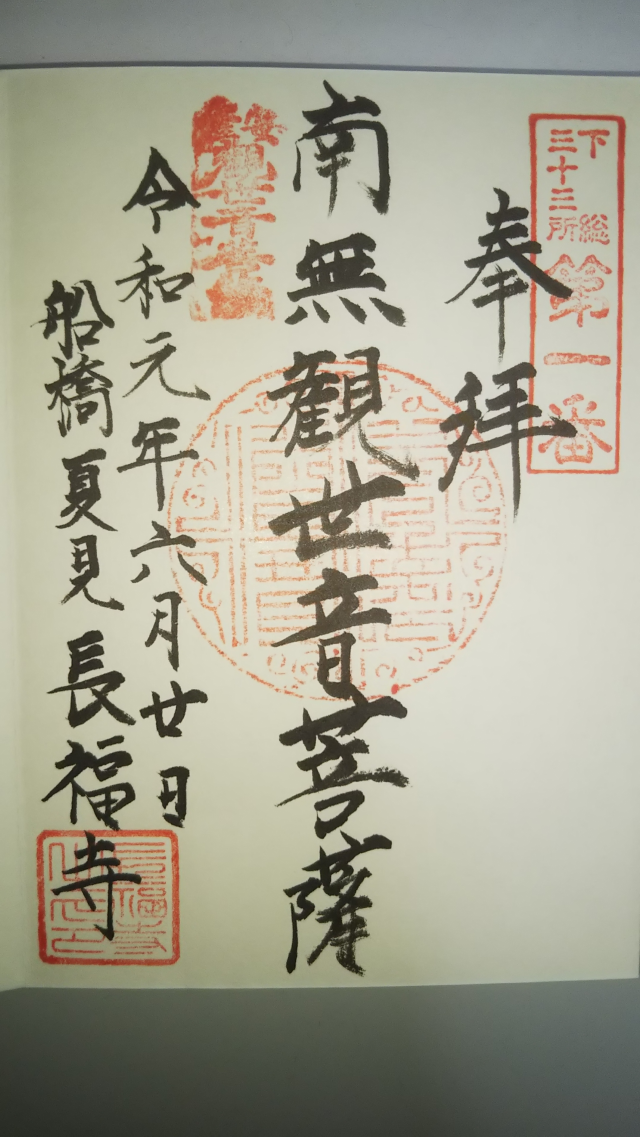 下総
三十三所
第一番
奉拝
南無観世音菩薩
令和元年六月廿日
船橋夏見長福寺